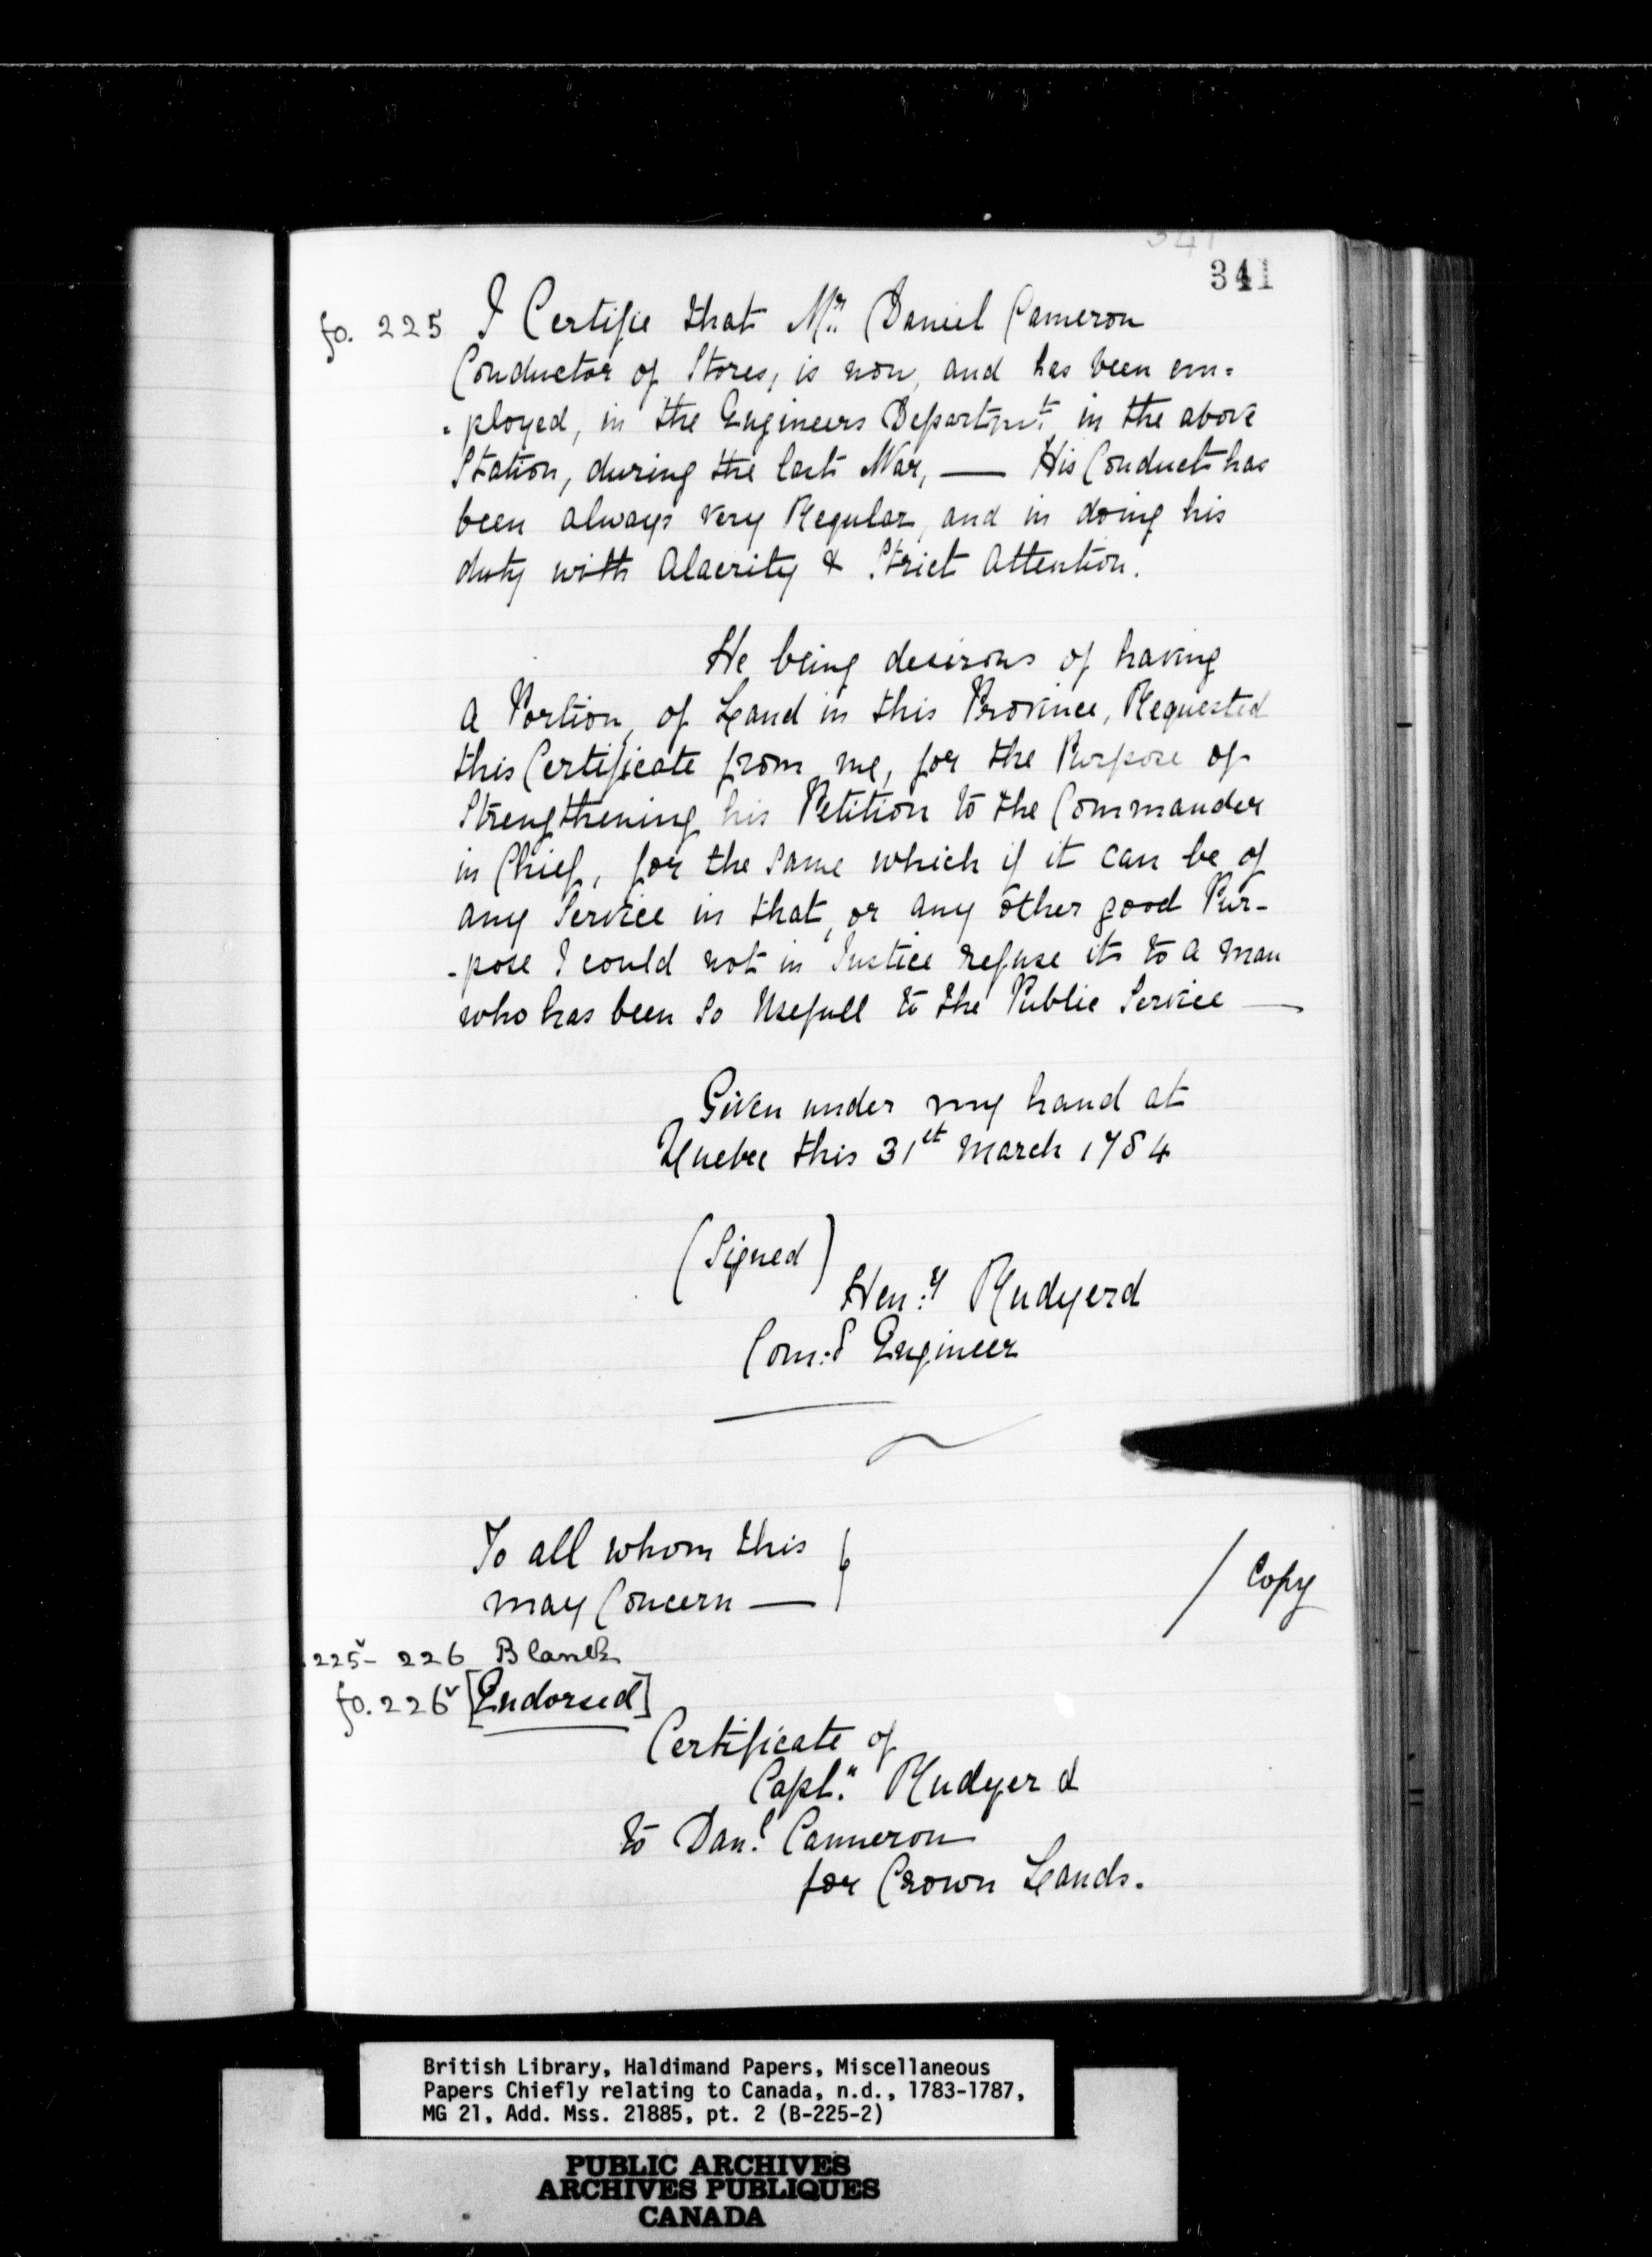 341
341
fo. 225 I Certifie that Mr. Daniel Cameron
Conductor of Stores, is now, and has been em=
=ployed, in the Engineers Departmt. in the above
Station, during the last War, — His Conduct has
been always very Regular, and in doing his
duty with Alacrity & Strict Attention.
He being desirous of having
a Portion, of Land in this Province, Requested
this Certificate from me, for the Purpose of
Strengthening his Petition to the Commander
in Chief, for the same which if it can be of
any Service in that, or any other good Pur-
-pose I could not in Justice refuse it to a man
who has been so Usefull to the Public Service —
Given under my hand at
Quebec this 31st March 1784
(Signed)
Hen:y Rudyerd
Com:d Engineer
To all whom this
may Concern —
/ Copy
225v- 226 Blank
fo. 226v [Endorsed]
Certificate of
Capt:n Rudyerd
to Dan:l Cameron
for Crown Lands.
British Library, Haldimand Papers, Miscellaneous
Papers Chiefly relating to Canada, n.d., 1783-1787,
MG 21, Add. Mss. 21885, pt. 2 (B-225-2)
PUBLIC ARCHIVES
ARCHIVES PUBLIQUES
CANADA